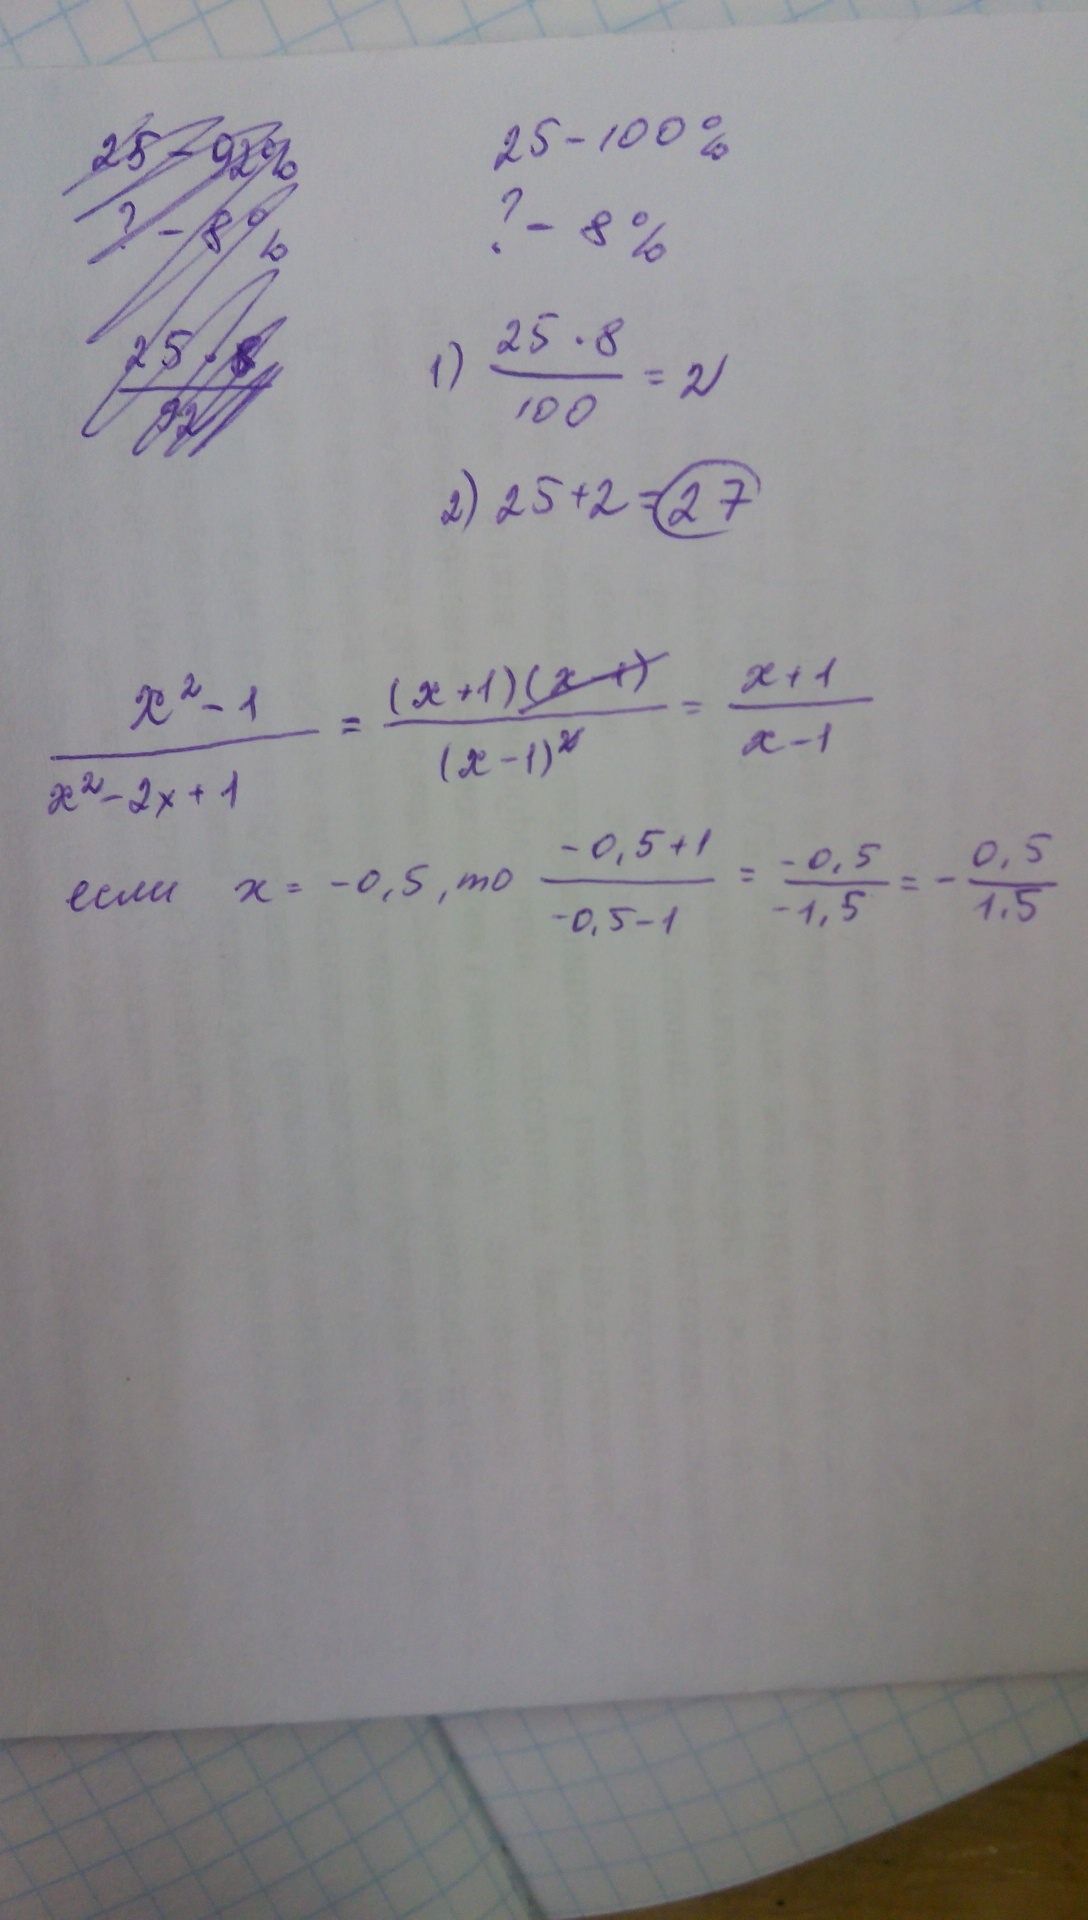 25 - 92%
? - 8%
25 · 8
92
25 - 100%
? - 8%
1) 25 · 8 / 100 = 2
2) 25 + 2 = 27
x² - 1 / x² - 2x + 1 = (x + 1)(x - 1) / (x - 1)² = x + 1 / x - 1
если x = -0,5, то -0,5 + 1 / -0,5 - 1 = -0,5 / -1,5 = - 0,5 / 1.5